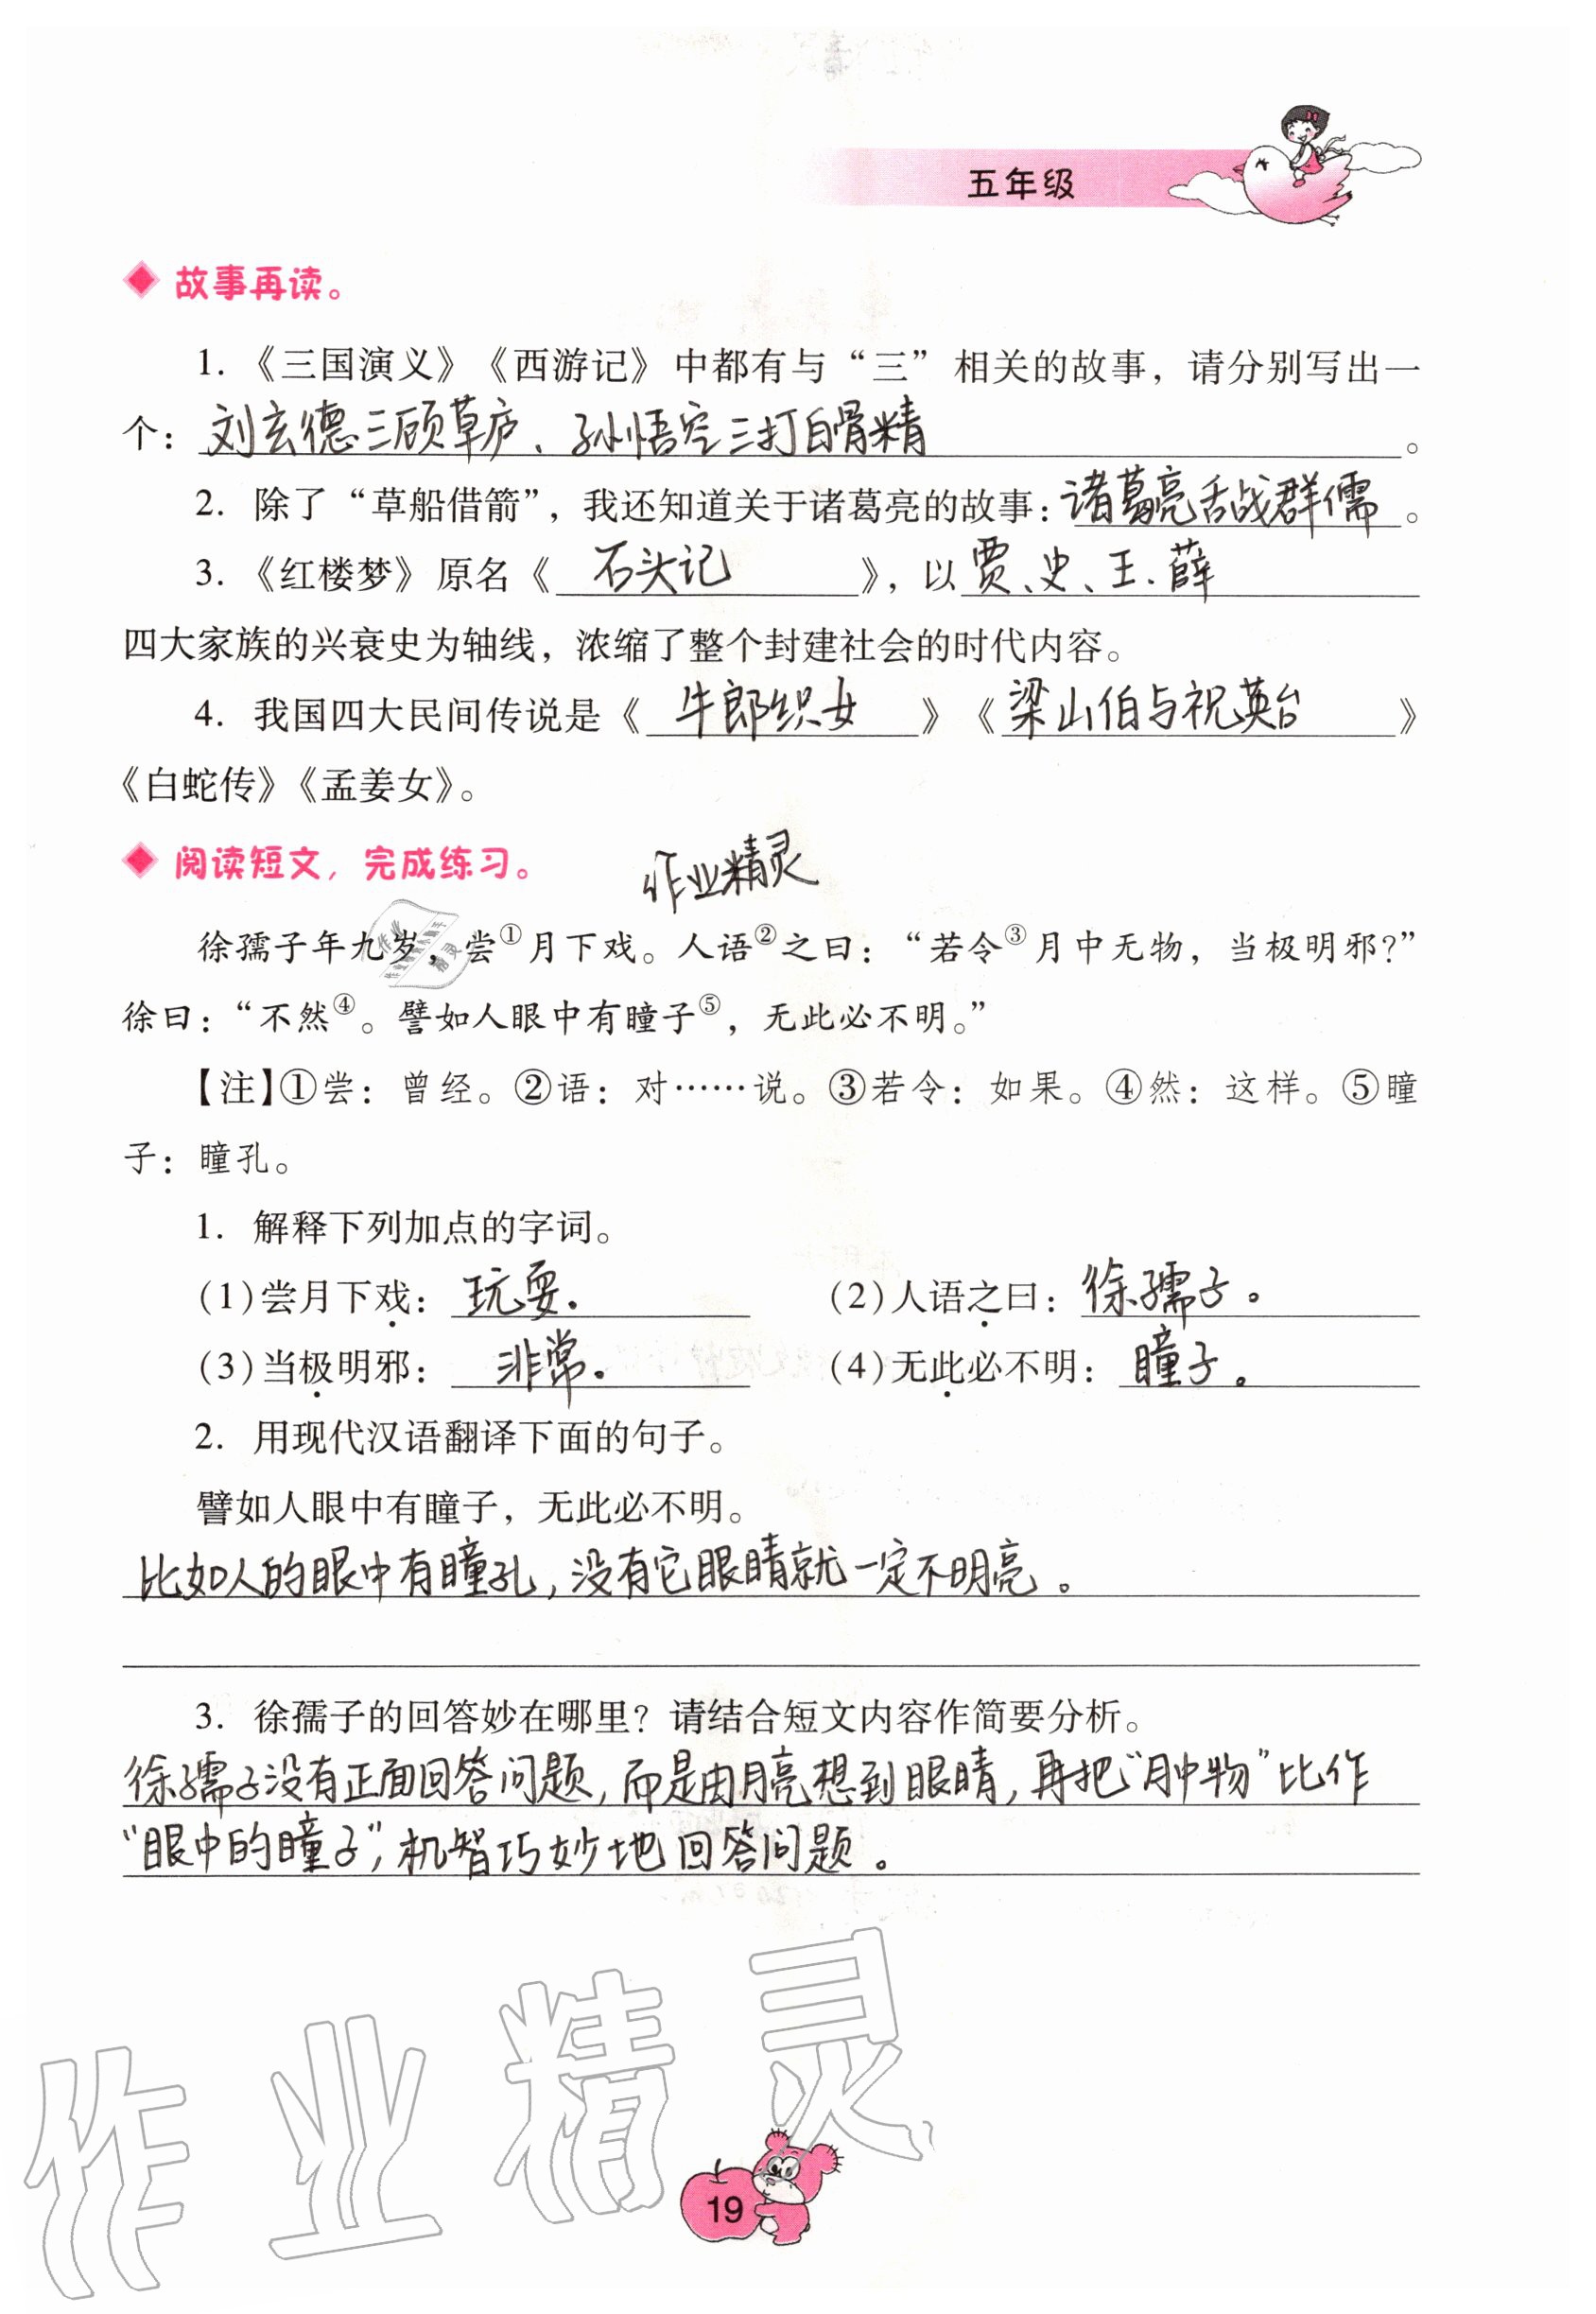 五年级
故事再读。
1. 《三国演义》《西游记》中都有与“三”相关的故事，请分别写出一
个：刘玄德三顾草庐、孙悟空三打白骨精。
2. 除了“草船借箭”，我还知道关于诸葛亮的故事：诸葛亮舌战群儒。
3. 《红楼梦》原名《石头记》，以贾、史、王、薛
四大家族的兴衰史为轴线，浓缩了整个封建社会的时代内容。
4. 我国四大民间传说是《牛郎织女》《梁山伯与祝英台》
《白蛇传》《孟姜女》。
阅读短文，完成练习。 作业精灵
徐孺子年九岁，尝①月下戏。人语②之曰：“若令③月中无物，当极明邪？”
徐曰：“不然④。譬如人眼中有瞳子⑤，无此必不明。”
【注】①尝：曾经。②语：对……说。③若令：如果。④然：这样。⑤瞳
子：瞳孔。
1. 解释下列加点的字词。
(1)尝月下戏：玩耍. (2)人语之曰：徐孺子。
(3)当极明邪：非常. (4)无此必不明：瞳子。
2. 用现代汉语翻译下面的句子。
譬如人眼中有瞳子，无此必不明。
比如人的眼中有瞳孔，没有它眼睛就一定不明亮。
3. 徐孺子的回答妙在哪里？请结合短文内容作简要分析。
徐孺子没有正面回答问题，而是由月亮想到眼睛，再把“月中物”比作
“眼中的瞳子”，机智巧妙地回答问题。
作业精灵
19